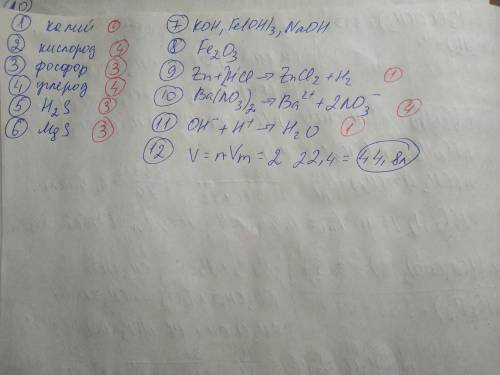 10)
① калий ⓪
② кислород ④
③ фосфор ③
④ углерод ④
⑤ H₂S ③
⑥ MgS ③
⑦ KOH, Fe(OH)3, NaOH
⑧ Fe₂O₃
⑨ Zn + HCl → ZnCl₂ + H₂ ①
⑩ Ba(NO₃)₂ → Ba²⁺ + 2NO₃⁻
⑪ OH⁻ + H⁺ → H₂O ①
⑫ V = nVm = 2 22,4 = 44,8л